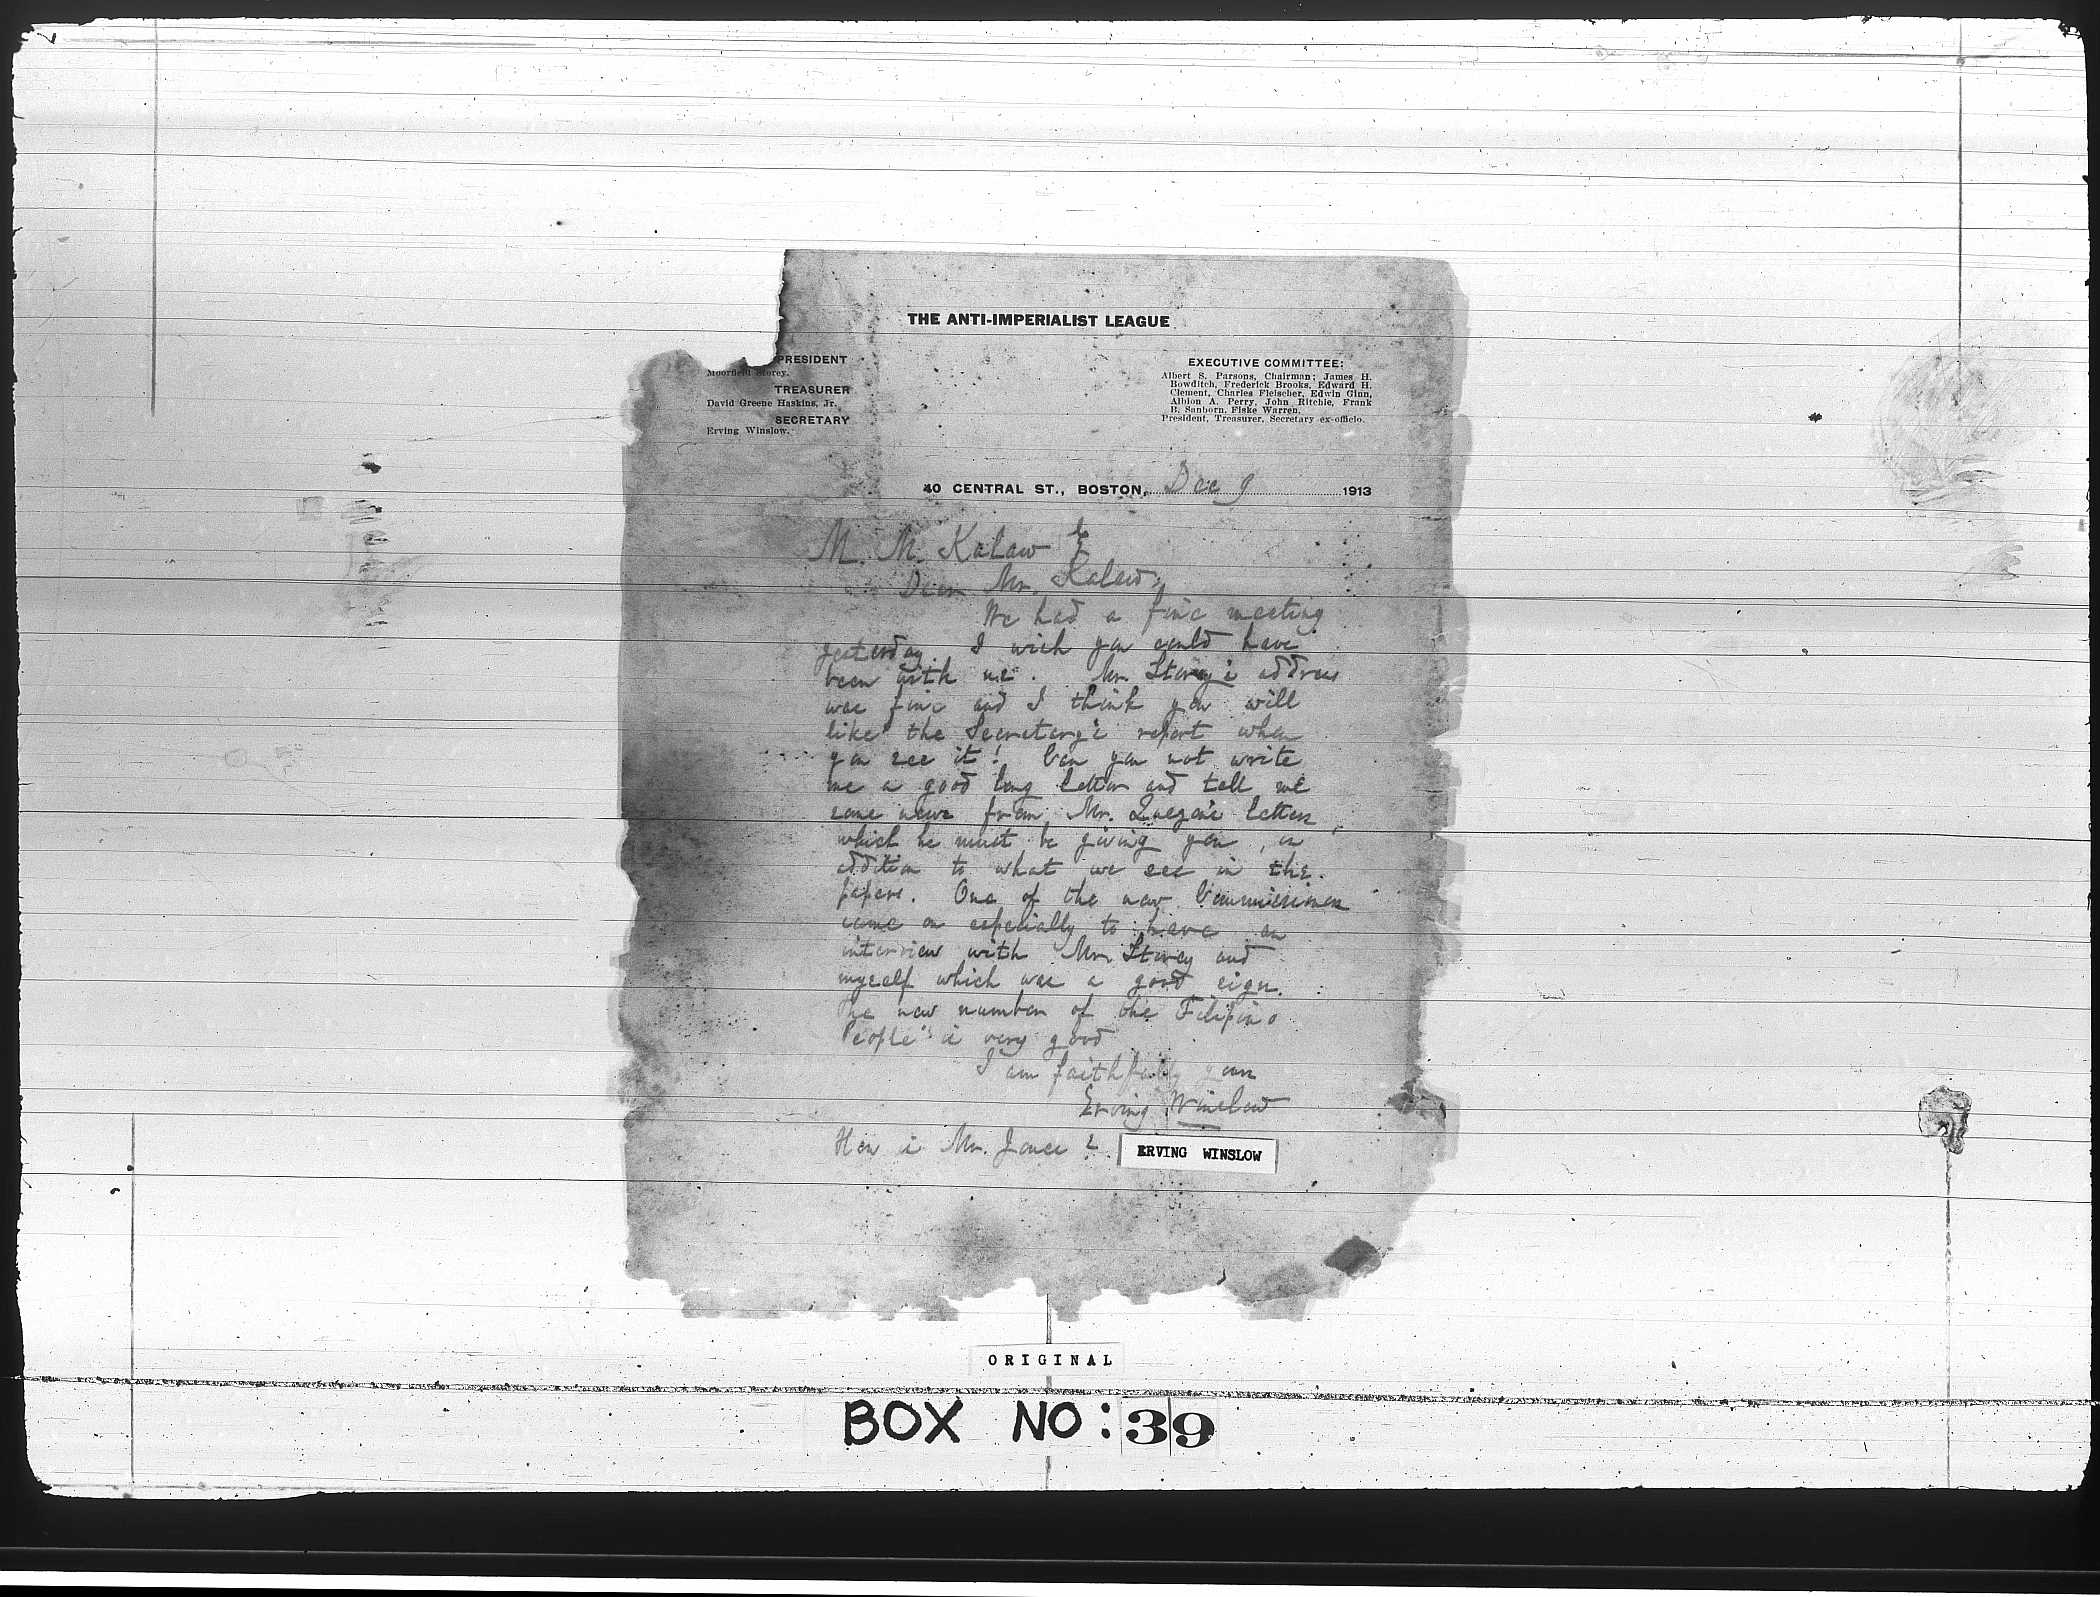 THE ANTI-IMPERIALIST LEAGUE
PRESIDENT
Moorfield Storey.
TREASURER
David Greene Haskins, Jr.
SECRETARY
Erving Winslow.
EXECUTIVE COMMITTEE:
Albert S. Parsons, Chairman; James H.
Bowditch, Frederick Brooks, Edward H.
Clement, Charles Fleischer, Edwin Ginn,
Albion A. Perry, John Ritchie, Frank
B. Sanborn, Fiske Warren.
President, Treasurer, Secretary ex-officio.
40 CENTRAL ST., BOSTON, Dec 9 1913
M. M. Kalaw
Dear Mr. Kalaw,
We had a fine meeting
yesterday. I wish you could have
been with me. Mr. Storey's address
was fine and I think you will
like the Secretary's report when
you see it! Can you not write
me a good long letter and tell me
some news from Mr. Quezon's letters,
which he must be giving you, in
addition to what we see in the
papers. One of the new Commissioners
came on especially to have an
interview with Mr. Storey and
myself which was a good sign.
The new number of the Filipino
People" is very good
I am faithfully yours
Erving Winslow
How is Mr. Jones?
ERVING WINSLOW
ORIGINAL
BOX NO: 39